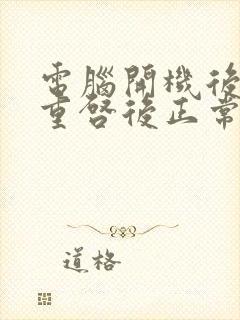 電腦開機後
重啓後正常
道格